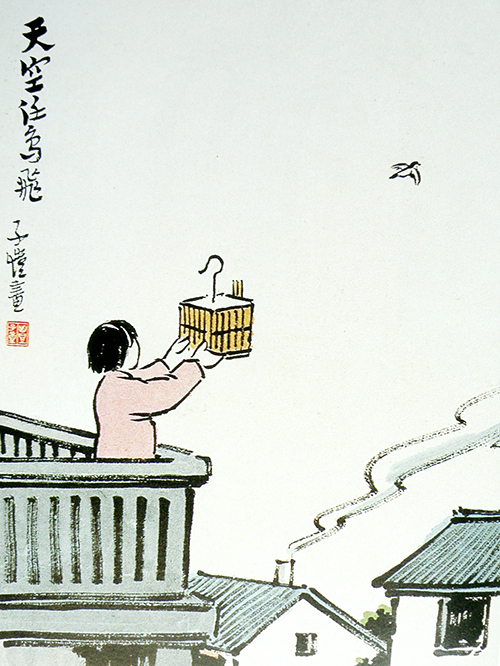 天空任鸟飛
子愷畫